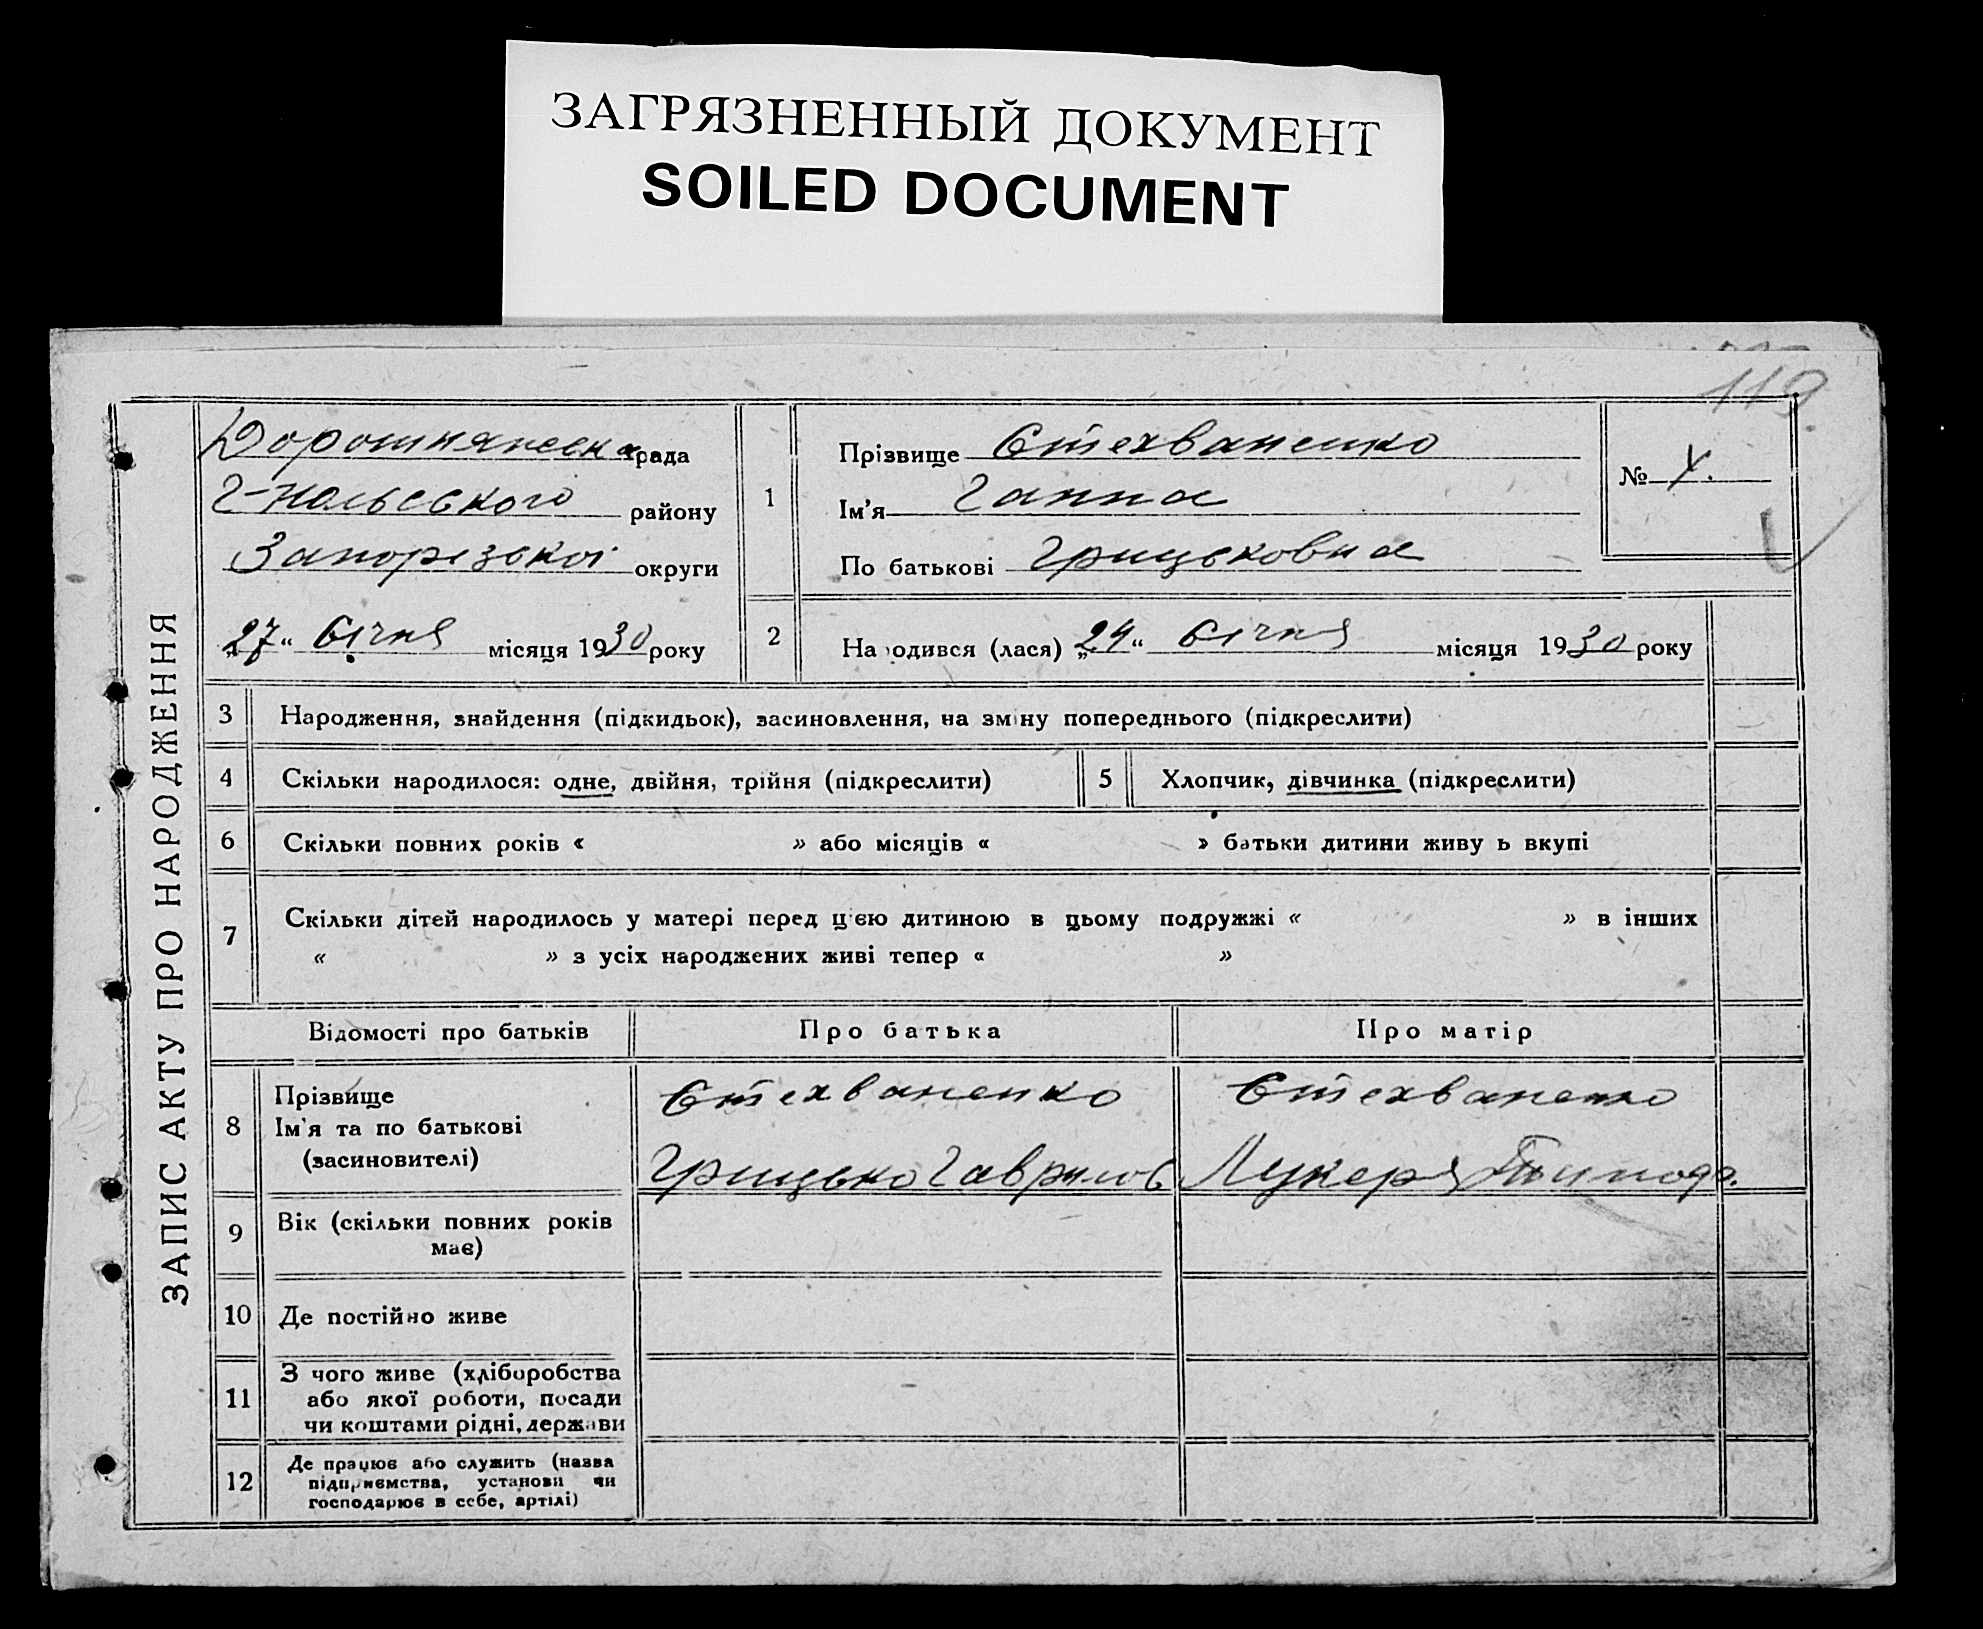 ЗАГРЯЗНЕННЫЙ ДОКУМЕНТ
SOILED DOCUMENT
119
ЗАПИС АКТУ ПРО НАРОДЖЕННЯ
рада
району
Запорізької округи
„27“ Січня місяця 1930 року
1
Прізвище Стехваненко
Ім'я Ганна
По батькові Грицьковна
№
2 Народився (лася) „24“ Січня місяця 1930 року
3 Народження, знайдення (підкидьок), засиновлення, на зміну попереднього (підкреслити)
4 Скільки народилося: одне, двійня, трійня (підкреслити)
5 Хлопчик, дівчинка (підкреслити)
6 Скільки повних років « » або місяців « » батьки дитини живуть вкупі
7 Скільки дітей народилось у матері перед цією дитиною в цьому подружжі « » в інших
« » з усіх народжених живі тепер « »
Відомості про батьків Про батька Про матір
8 Прізвище
Ім'я та по батькові
(засиновителі)
Стехваненко
Грицько Гаврилов
Стехваненко
Лукеря
9 Вік (скільки повних років
має)
10 Де постійно живе
11 З чого живе (хліборобства
або якої роботи, посади
чи коштами рідні, держави
12 Де працює або служить (назва
підприємства, установи чи
господарює в себе, артілі)